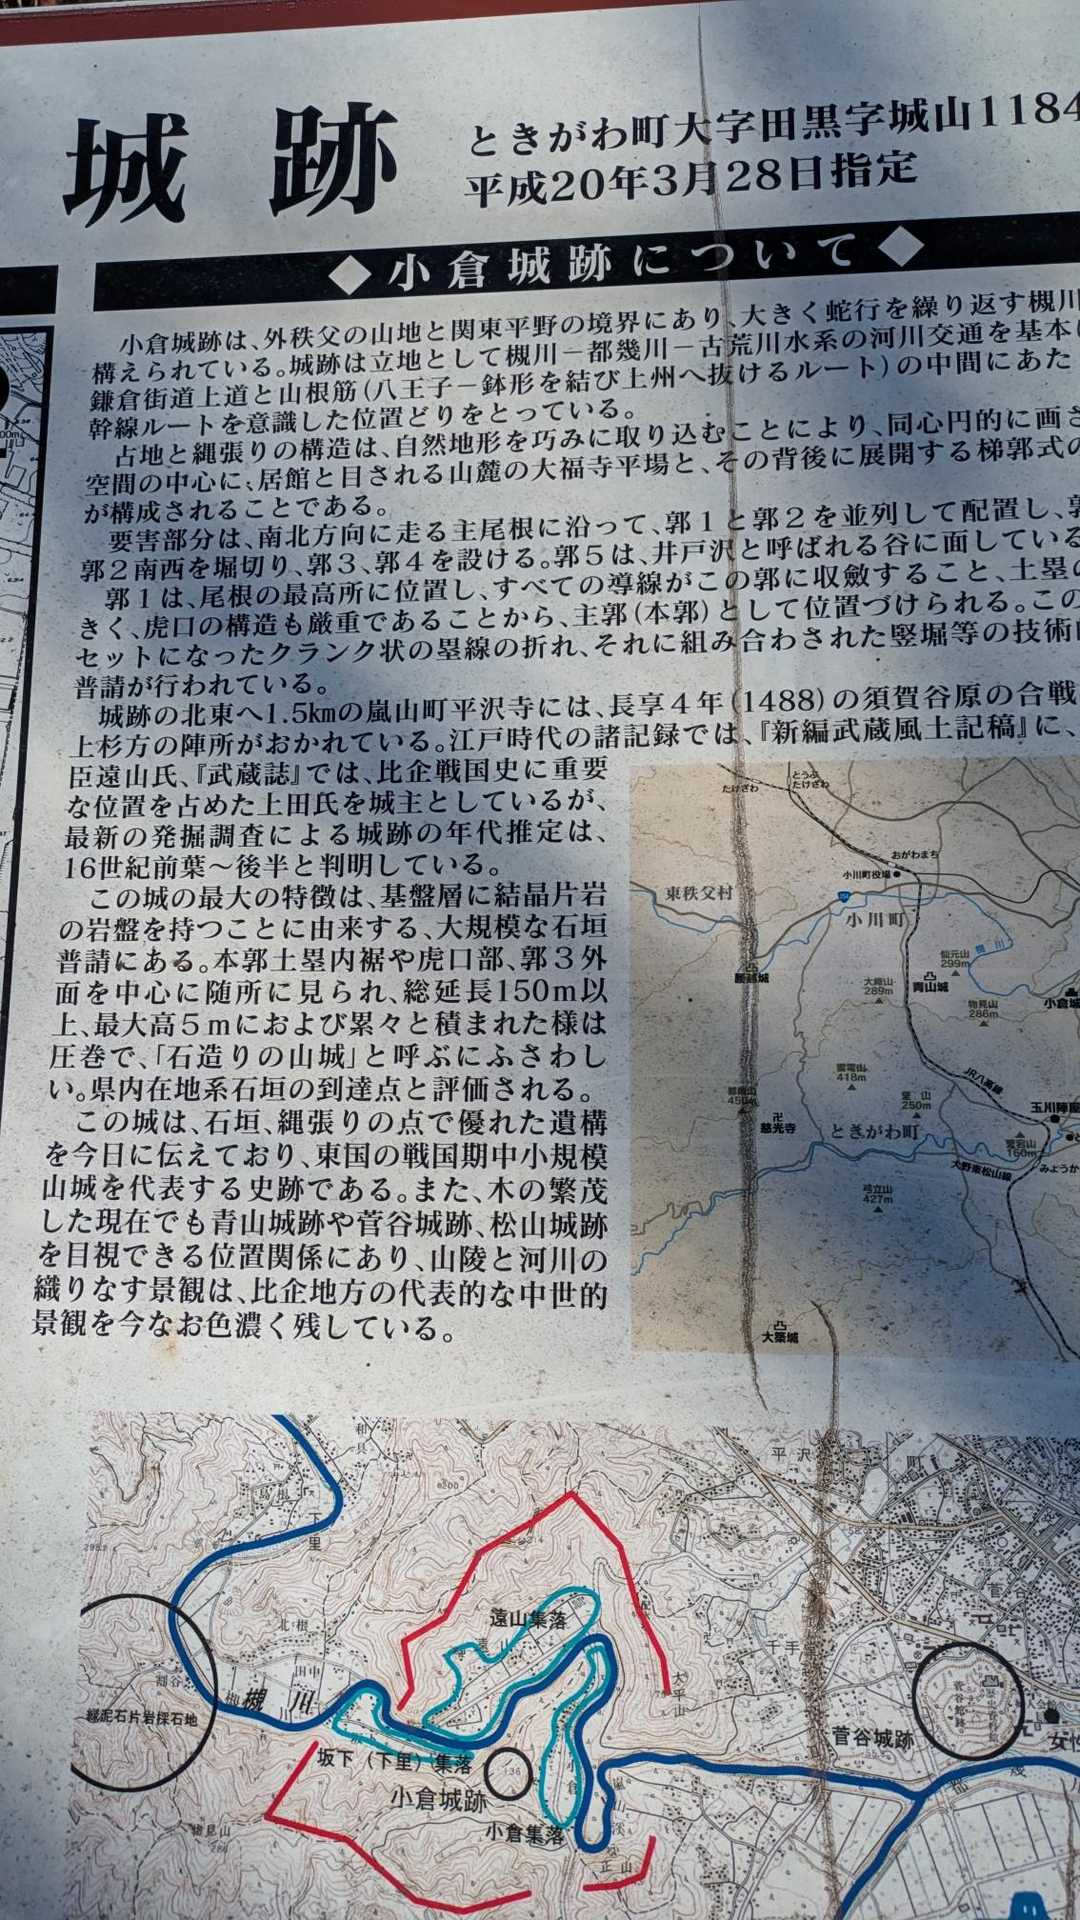 城跡
ときがわ町大字田黒字城山1184
平成20年3月28日指定
◆小倉城跡について◆
小倉城跡は、外秩父の山地と関東平野の境界にあり、大きく蛇行を繰り返す槻川
構えられている。城跡は立地として槻川－都幾川－古荒川水系の河川交通を基本に
鎌倉街道上道と山根筋(八王子－鉢形を結び上州へ抜けるルート)の中間にあた
幹線ルートを意識した位置どりをとっている。
占地と縄張りの構造は、自然地形を巧みに取り込むことにより、同心円的に画さ
空間の中心に、居館と目される山麓の大福寺平場と、その背後に展開する梯郭式の
が構成されることである。
要害部分は、南北方向に走る主尾根に沿って、郭1と郭2を並列して配置し、郭
郭2南西を堀切り、郭3、郭4を設ける。郭5は、井戸沢と呼ばれる谷に面している
郭1は、尾根の最高所に位置し、すべての導線がこの郭に収斂すること、土塁の
きく、虎口の構造も厳重であることから、主郭(本郭)として位置づけられる。この
セットになったクランク状の塁線の折れ、それに組み合わされた竪堀等の技術
普請が行われている。
城跡の北東へ1.5kmの嵐山町平沢寺には、長享4年(1488)の須賀谷原の合戦
上杉方の陣所がおかれている。江戸時代の諸記録では、『新編武蔵風土記稿』に、
臣遠山氏、『武蔵誌』では、比企戦国史に重要
な位置を占めた上田氏を城主としているが、
最新の発掘調査による城跡の年代推定は、
16世紀前葉～後半と判明している。
この城の最大の特徴は、基盤層に結晶片岩
の岩盤を持つことに由来する、大規模な石垣
普請にある。本郭土塁内裾や虎口部、郭3外
面を中心に随所に見られ、総延長150m以
上、最大高5mにおよび累々と積まれた様は
圧巻で、「石造りの山城」と呼ぶにふさわし
い。県内在地系石垣の到達点と評価される。
この城は、石垣、縄張りの点で優れた遺構
を今日に伝えており、東国の戦国期中小規模
山城を代表する史跡である。また、木の繁茂
した現在でも青山城跡や菅谷城跡、松山城跡
を目視できる位置関係にあり、山陵と河川の
織りなす景観は、比企地方の代表的な中世的
景観を今なお色濃く残している。
とうぶ
たけざわ
たけざわ
おがわまち
小川町役場
東秩父村
小川町
仙元山
299m
槻川
腰越城
大峰山
289m
青山城
物見山
286m
小倉城
雷電山
418m
250m
JR八高線
玉川陣屋
慈光寺
ときがわ町
愛宕山
160m
大野東松山線
みょうか
弓立山
427m
大築城
平沢
下里
遠山集落
遠山
北根
千手
大平山
田中
割谷
槻川
緑泥石片岩採石地
坂下(下里)集落
136
小倉城跡
小倉
小倉集落
嵐山渓
正山
物見山
286
菅谷城跡
菅谷館跡
都幾